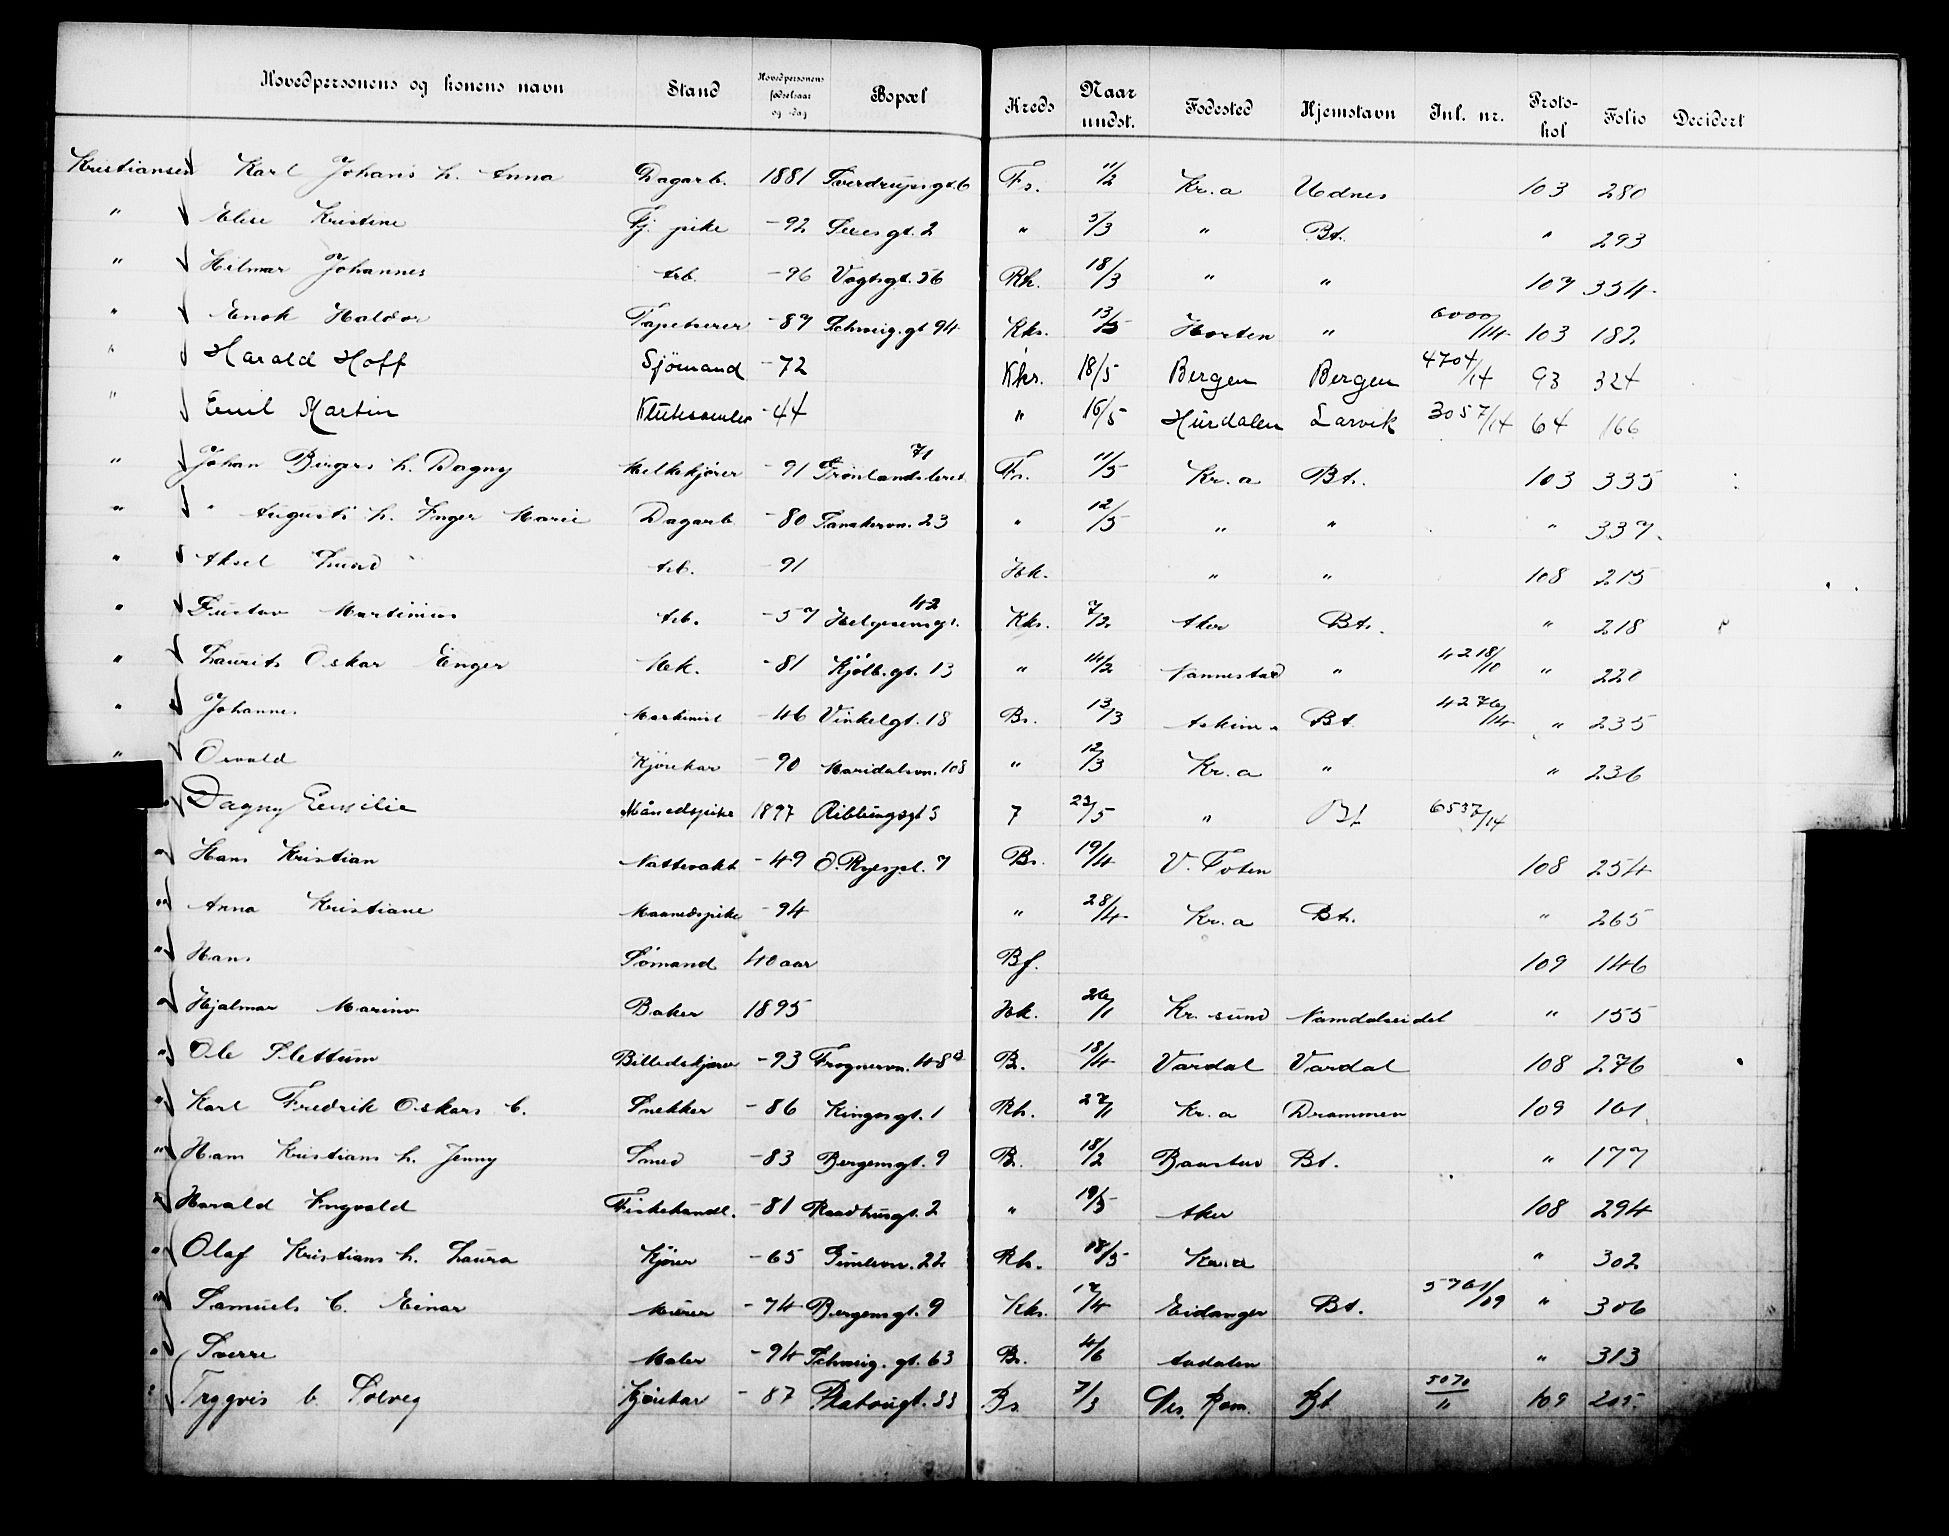 Hovedpersonens og konens navn Stand Hovedpersonens fødselsaar og -dag Bopæl Kreds Naar undst. Fødested Hjemstavn Inl. nr. Protokol Folio Decidert
Kristiansen Karl Johans h. Anna Dagarb. 1881 Sverdrupsgt. 6 Fs. 11/2 Kr.a Udnes 103 280
" Elise Kristine Tj. pike -92 2 " 5/3 " Bt. " 293
" Hilmar Johannes Arb. -96 Vogtsgt. 56 Rh. 18/3 " " 107 334
" Enok Haldor Tapetserer -87 Schweig.gt 94 Kks. 13/5 Horten " 6000/14 103 182
" Harald Hoff Sjömand -72 Kks. 18/5 Bergen Bergen 4704/14 93 324
" Emil Martin Klutesamler -44 " 16/5 Hurdalen Larvik 3057/14 64 166
" Johan Birgers h. Dagny Melkekjører -91 Grønlandsleret 71 Fs. 11/5 Kr.a Bt. 103 335
" " Augusts h. Inger Marie Dagarb -80 23 " 12/5 " " " 337
" Aksel Arb. -91 Hk. " " 108 215
" Gustav Martinius Arb. -57 Helgesensgt. 42 Kks. 7/2 Aker Bt. " 218
" Laurits Oskar Enger Mek. -81 Kjölb.gt. 13 " 14/2 Nannestad " 4218/10 " 220
" Johannes Maskinist -46 Vinkelgt. 18 Bs. 13/3 Askim Bt. 4276/14 " 235
" Osvald Kjörekar -90 Maridalsvn. 108 " 12/3 Kr.a " " 236
" Dagny Emilie Månedspike 1897 Ribbungsgt 3 7 23/5 " Bt 6537/14
" Hans Kristian Nattevakt -49 O. Ryespl. 7 Bs. 19/4 V. Toten 108 254
" Anna Kristiane Maanedspike -94 " 28/4 Kr.a Bt. " 265
" Hans Sømand 40 aar Bf. 109 146
" Hjalmar Marino Baker 1895 Hk. 26/1 Kr. sund Namdalseidet " 155
" Ole Slettum Billedskjærer -93 Frognervn. 48 B. 18/4 Vardal Vardal 108 276
" Karl Fredrik Oskars e. Snekker -86 Kingosgt. 1 Rh. 27/1 Kr.a Drammen 109 161
" Hans Kristians h. Jenny Smed -83 Bergensgt. 9 B. 18/2 Baastad Bt. " 177
" Harald Ingvald Fiskehandl. -81 Raadhusgt. 2 " 19/5 Aker 108 294
" Olaf Kristians h. Laura Kjører -65 22 Rh. 18/5 Kr.a " 302
" Samuels e. Einar Murer -74 Bergensgt. 9 Kks. 17/4 Eidanger Bt. 5761/09 " 306
" Sverre Maler -94 Schweig. gt. 63 Bs. 4/6 Aadalen " 313
" Trygvis e. Solveg Kjörekar -87 Platougt. 33 Bs. 7/3 Nes, Rom. Bt 5070/11 109 205